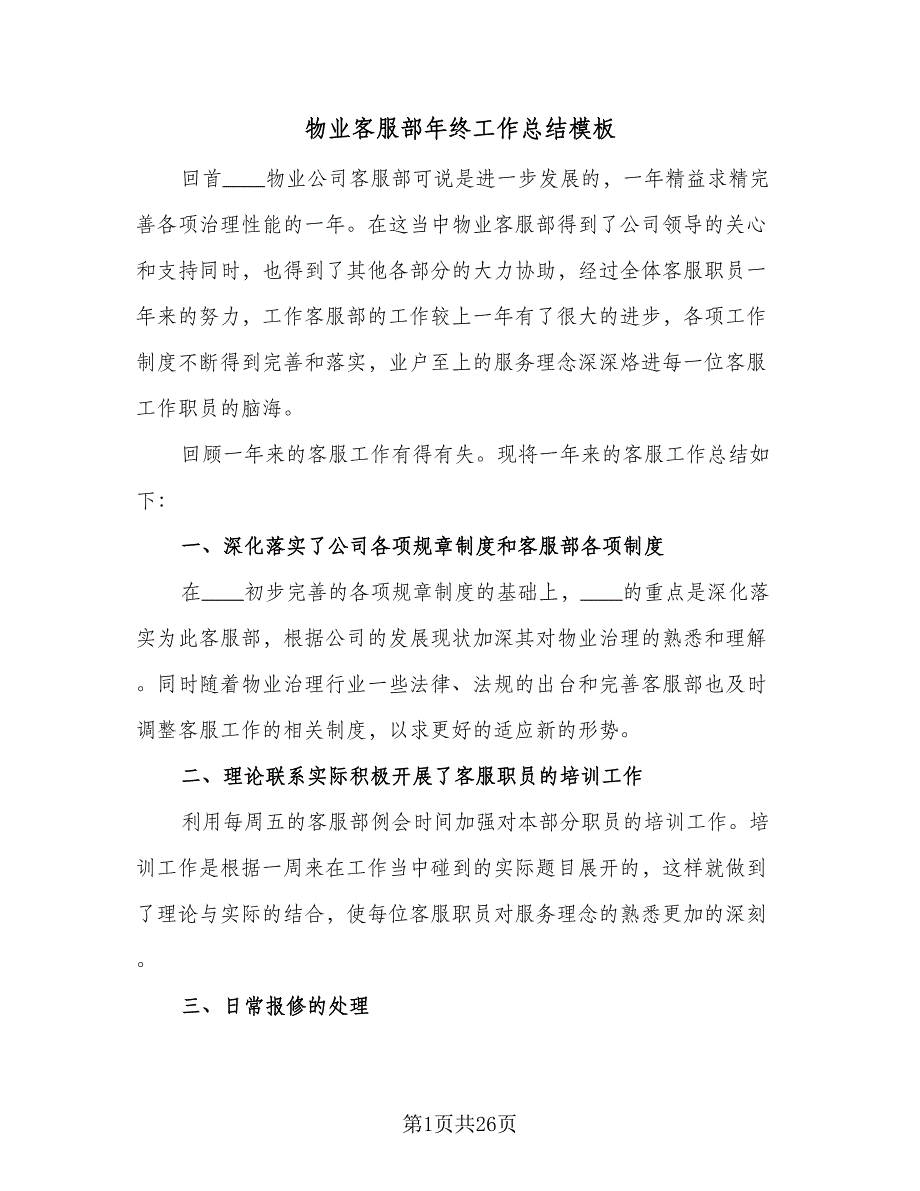 物业客服部年终工作总结模板
回首____物业公司客服部可说是进一步发展的，一年精益求精完
善各项治理性能的一年。在这当中物业客服部得到了公司领导的关心
和支持同时，也得到了其他各部分的大力协助，经过全体客服职员一
年来的努力，工作客服部的工作较上一年有了很大的进步，各项工作
制度不断得到完善和落实，业户至上的服务理念深深烙进每一位客服
工作职员的脑海。
回顾一年来的客服工作有得有失。现将一年来的客服工作总结如
下：
一、深化落实了公司各项规章制度和客服部各项制度
在____初步完善的各项规章制度的基础上，____的重点是深化落
实为此客服部，根据公司的发展现状加深其对物业治理的熟悉和理解
。同时随着物业治理行业一些法律、法规的出台和完善客服部也及时
调整客服工作的相关制度，以求更好的适应新的形势。
二、理论联系实际积极开展了客服职员的培训工作
利用每周五的客服部例会时间加强对本部分职员的培训工作。培
训工作是根据一周来在工作当中碰到的实际题目展开的，这样就做到
了理论与实际的结合，使每位客服职员对服务理念的熟悉更加的深刻
。
三、日常报修的处理
第1页共26页